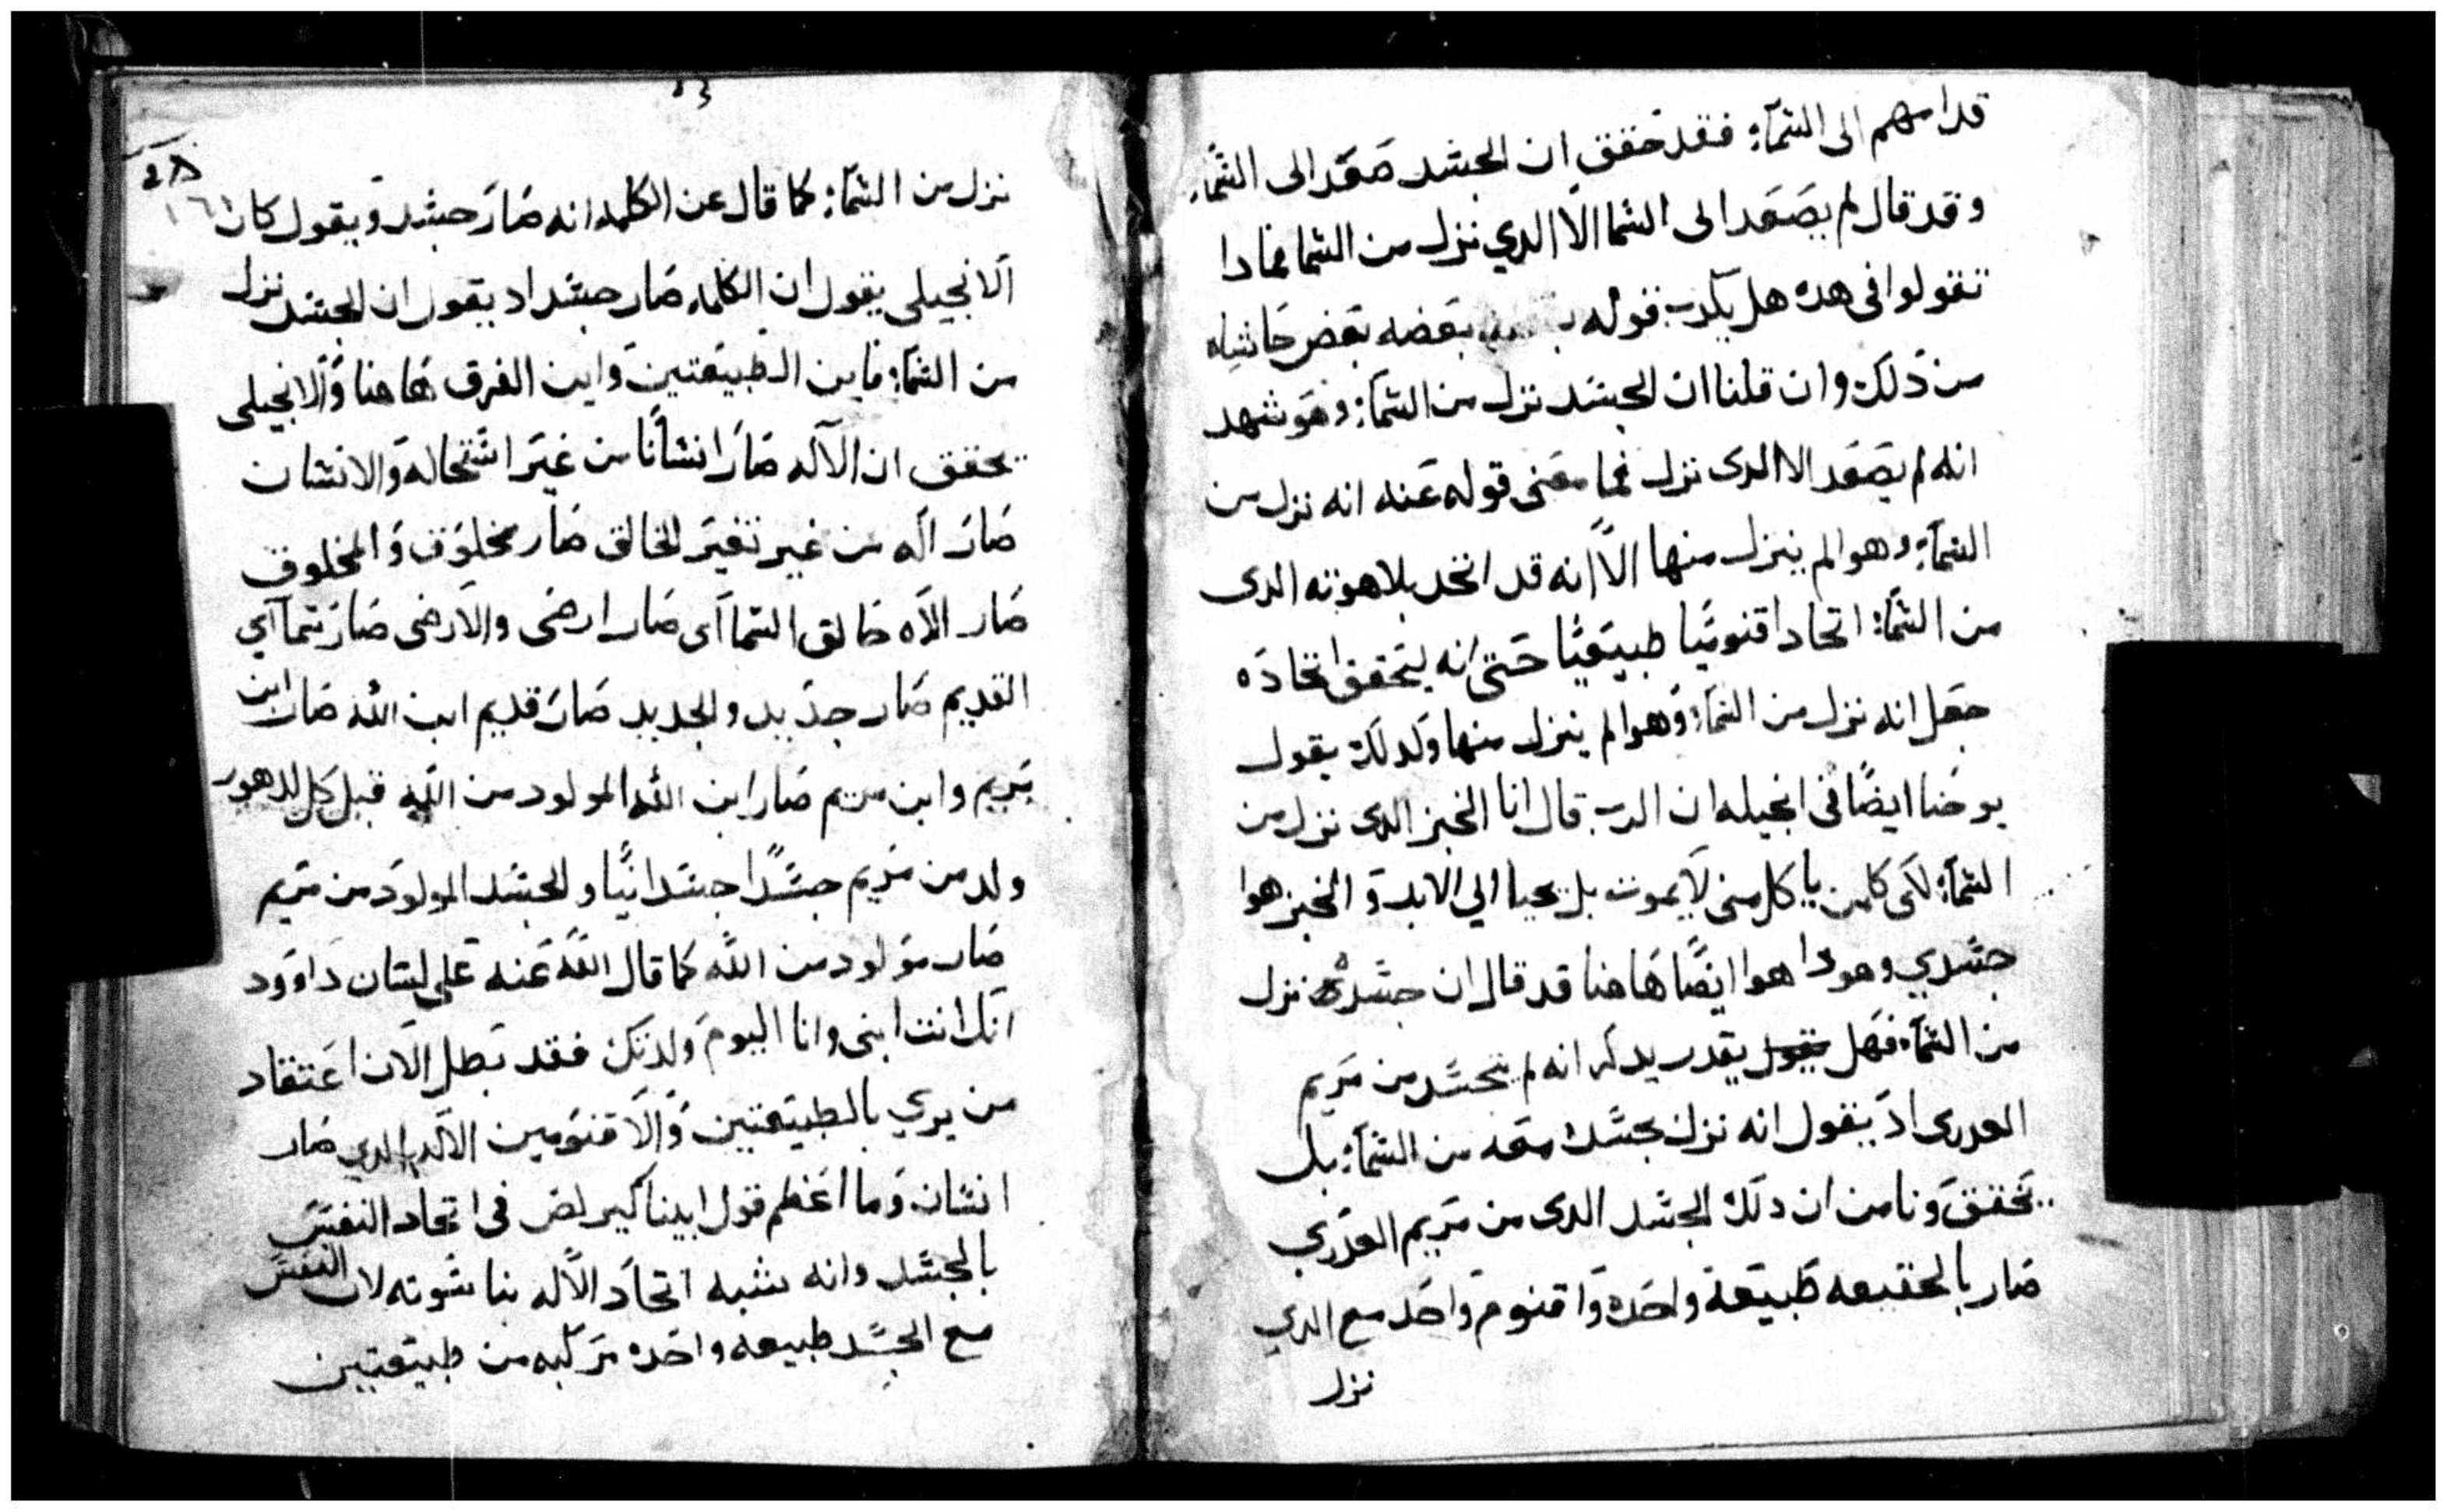 قدامهم الى السماء فقد حقق ان الجسد صعد الى السماء
وقد قال لم يصعد الى السما الا الدي نزل من السما فمادا
تقولوا فى هده هل يكدب قوله بعضه بعض حاشاه
من دلك وان قلنا ان الجسد نزل من السماء وهو شهد
انه لم يصعد الا الدى نزل فما معنى قوله عنه انه نزل من
السماء وهوا لم ينزل منها الا انه قد اتحد بلاهوته الدى
من السماء اتحادا قنوميا طبيعيا حتى انه ليحقق اتحاده
جعل انه نزل من السماء وهوا لم ينزل منها ولدلك يقول
يوحنا ايضا فى انجيله ان الرب قال انا الخبز الدى نزل من
السماء لكى كلمن ياكل منى لا يموت بل يحيا الي الابد والخبز هوا
جسدي وهودا هوا ايضا هاهنا قد قال ان جسدى نزل
من السماء فهل يقول يقدر يدكر انه لم يتجسد من مريم
العدرى اد يقول انه نزل بجسده معه من السماء بل
تحقق ونامن ان دلك الجسد الدى من مريم العدري
صار بالحقيقه طبيعة واحده واقنوم واحد مع الدي
نزل
٢٨
١٦١
نزل من السماء كما قال عن الكلمه انه صار جسد ويقول كان
الانجيلى يقول ان الكلمه صار جسد اد يقول ان الجسد نزل
من السماء فاين الطبيعتين واين الفرق هاهنا والانجيلى
يحقق ان الاله صار انسانا من غير استحاله والانسان
صار اله من غير تغير الخالق صار مخلوق والمخلوق
صار الاه خالق السماآى صار ارضى والارضى صار سماآي
القديم صار جديد والجديد صار قديم ابن الله صار ابن
مريم وابن مريم صار ابن الله المولود من الله قبل كل الدهور
ولد من مريم جسدا جسدانيا والجسد المولود من مريم
صار مولود من الله كما قال الله عنه على لسان داوود
انك انت ابنى وانا اليوم ولدتك فقد بطل الان اعتقاد
من يري بالطبيعتين والاقنومين الاله الدي صار
انسان وما اعظم قول ابينا كيرلص فى اتحاد النفس
بالجسد وانه شبه اتحاد الاله بناسوته لان النفس
مع الجسد طبيعه واحده مركبه من طبيعتين